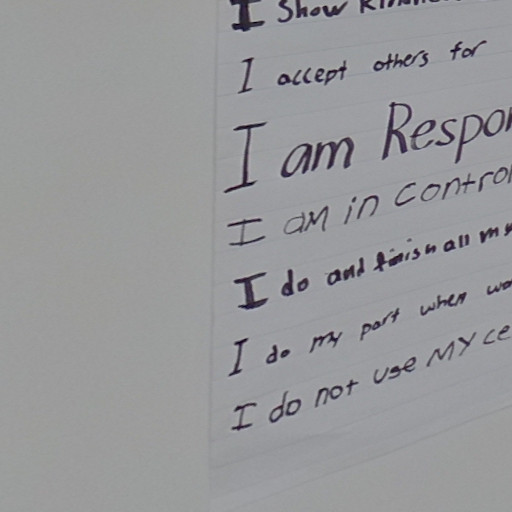 I show
I accept others for
I am Respo
I am in contro
I do and finish all my
I do my part when wo
I do not use MY ce